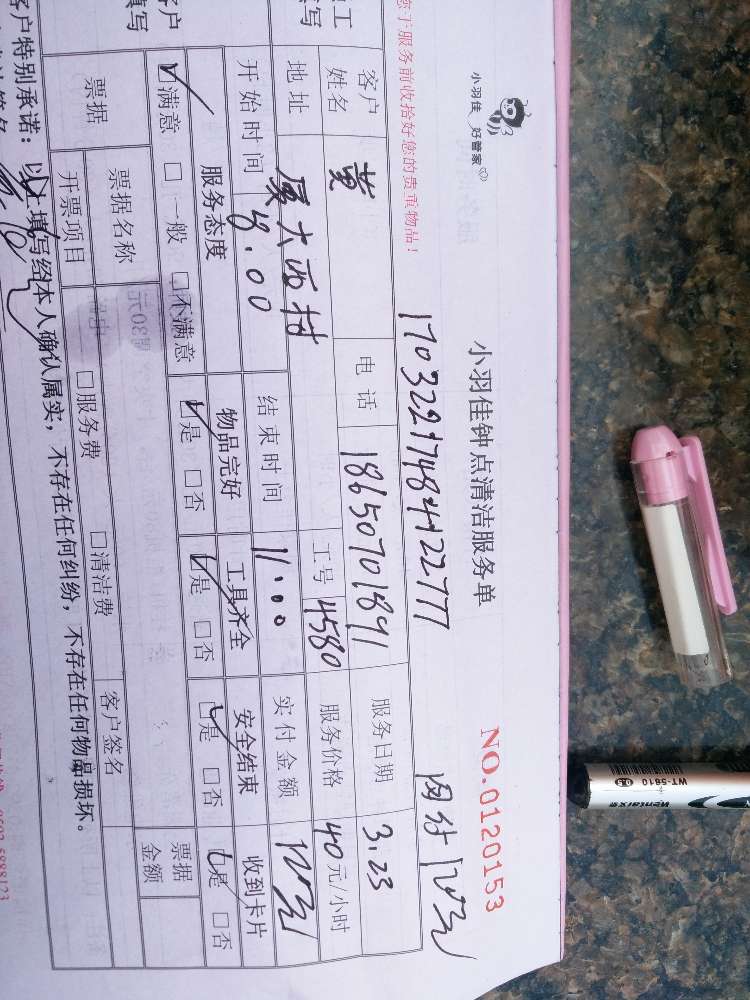 小羽佳 好管家
小羽佳钟点清洁服务单
NO.0120153
17032217484122777
网付120元
您于服务前收拾好您的贵重物品!
客户姓名 黄 电话 18650701891 服务日期 3.23
地址 厦大西村 工号 4580 服务价格 40元/小时
开始时间 8:00 结束时间 11:00 实付金额 120元
服务态度 物品完好 工具齐全 安全结束 收到卡片
满意 □一般 □不满意 是 □否 是 □否 是 □否 是 □否
票据 票据名称 票据金额
开票项目 □服务费 □清洁费
客户签名
客户特别承诺:以上填写经本人确认属实,不存在任何纠纷,不存在任何物品损坏。
WT-5810 0.5